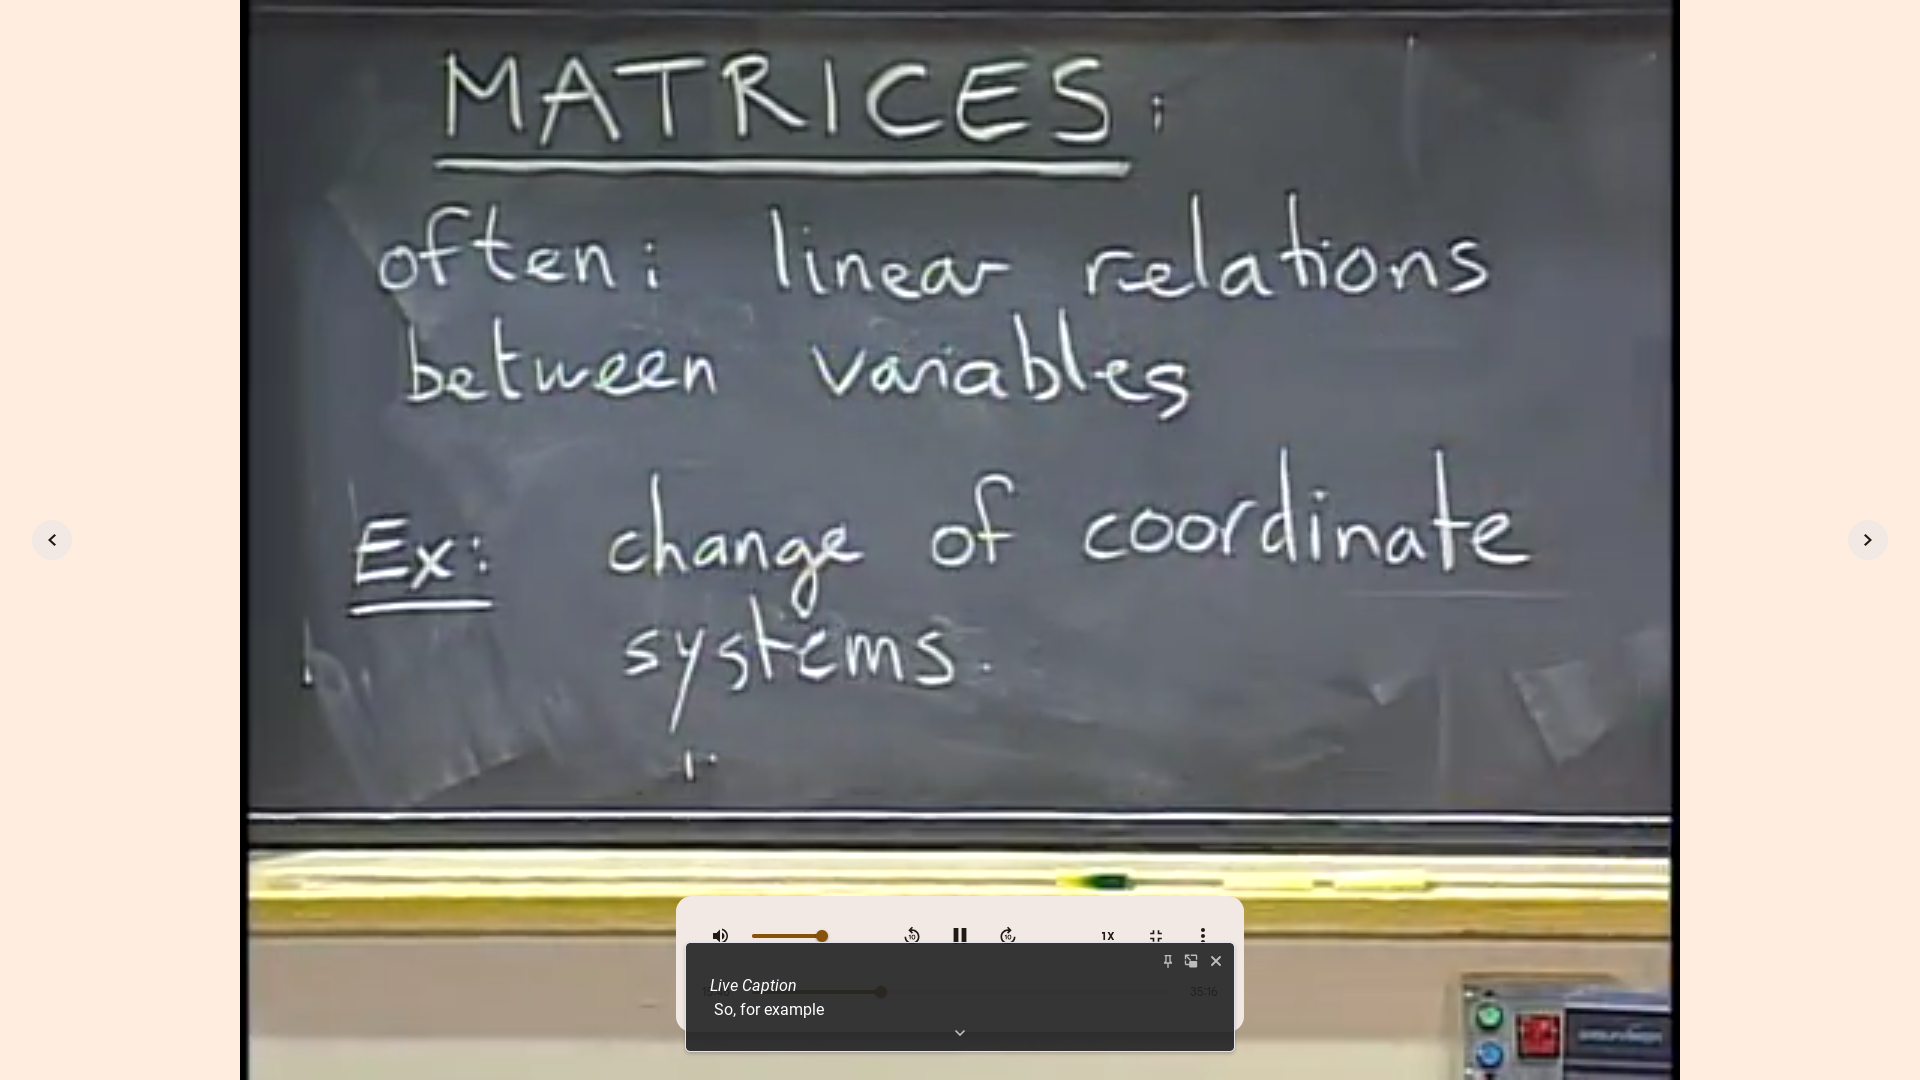 MATRICES:
often: linear relations
between variables
Ex: change of coordinate
systems.
10
10
1X
Live Caption
35:16
So, for example